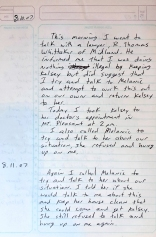 8.10.07
This morning I went to
talk with a lawyer, R. Thomas
Whittaker of Midland. He
informed me that I was doing
nothing illegal by keeping
Kelsey but did suggest that
I try and talk to Melanie
and attempt to work this out
on our own and return Kelsey
to her.
Today I took Kelsey to
her doctor's appointment in
Mt. Pleasant at 2 pm.
I also called Melanie to
try and talk to her about our
situation, she refused and hung
up on me.
8.11.07
Again I called Melanie to
try and talk to her about our
situation. I told her if she
would talk to me about this
and keep her house clean that
she could come and get Kelsey.
She still refused to talk and
hung up on me again.